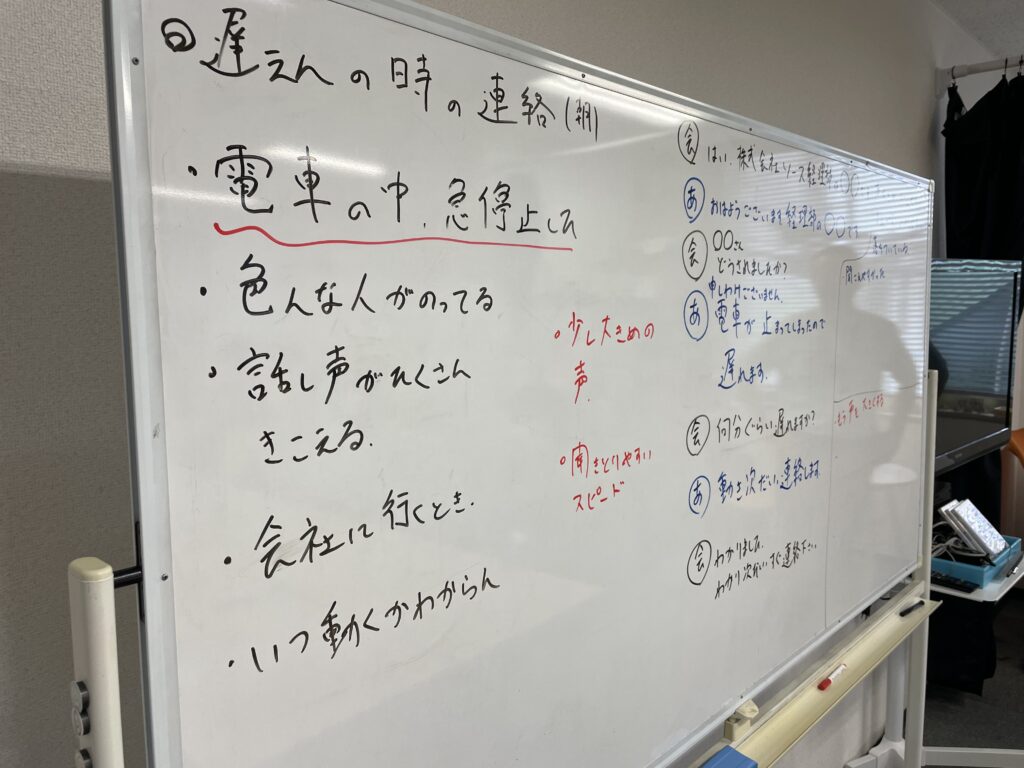 回 遅えんの時の連絡(朝)
・電車の中、急停止した
・色んな人がのってる
・話し声がたくさん
きこえる.
・会社に行くとき.
・いつ動くかわからん
・少し大きめの
声.
・聞きとりやすい
スピード
会 はい、株式会社リソース経理部
あ おはようございます経理部の〇〇です
会 〇〇さん
どうされましたか?
申しわけございません.
あ 電車が止まってしまったので
遅れます.
会 何分ぐらい遅れますか?
あ 動き次だい、連絡します
会 わかりました.
わかり次だいすぐ連絡下さい
もう少し声を大きくする